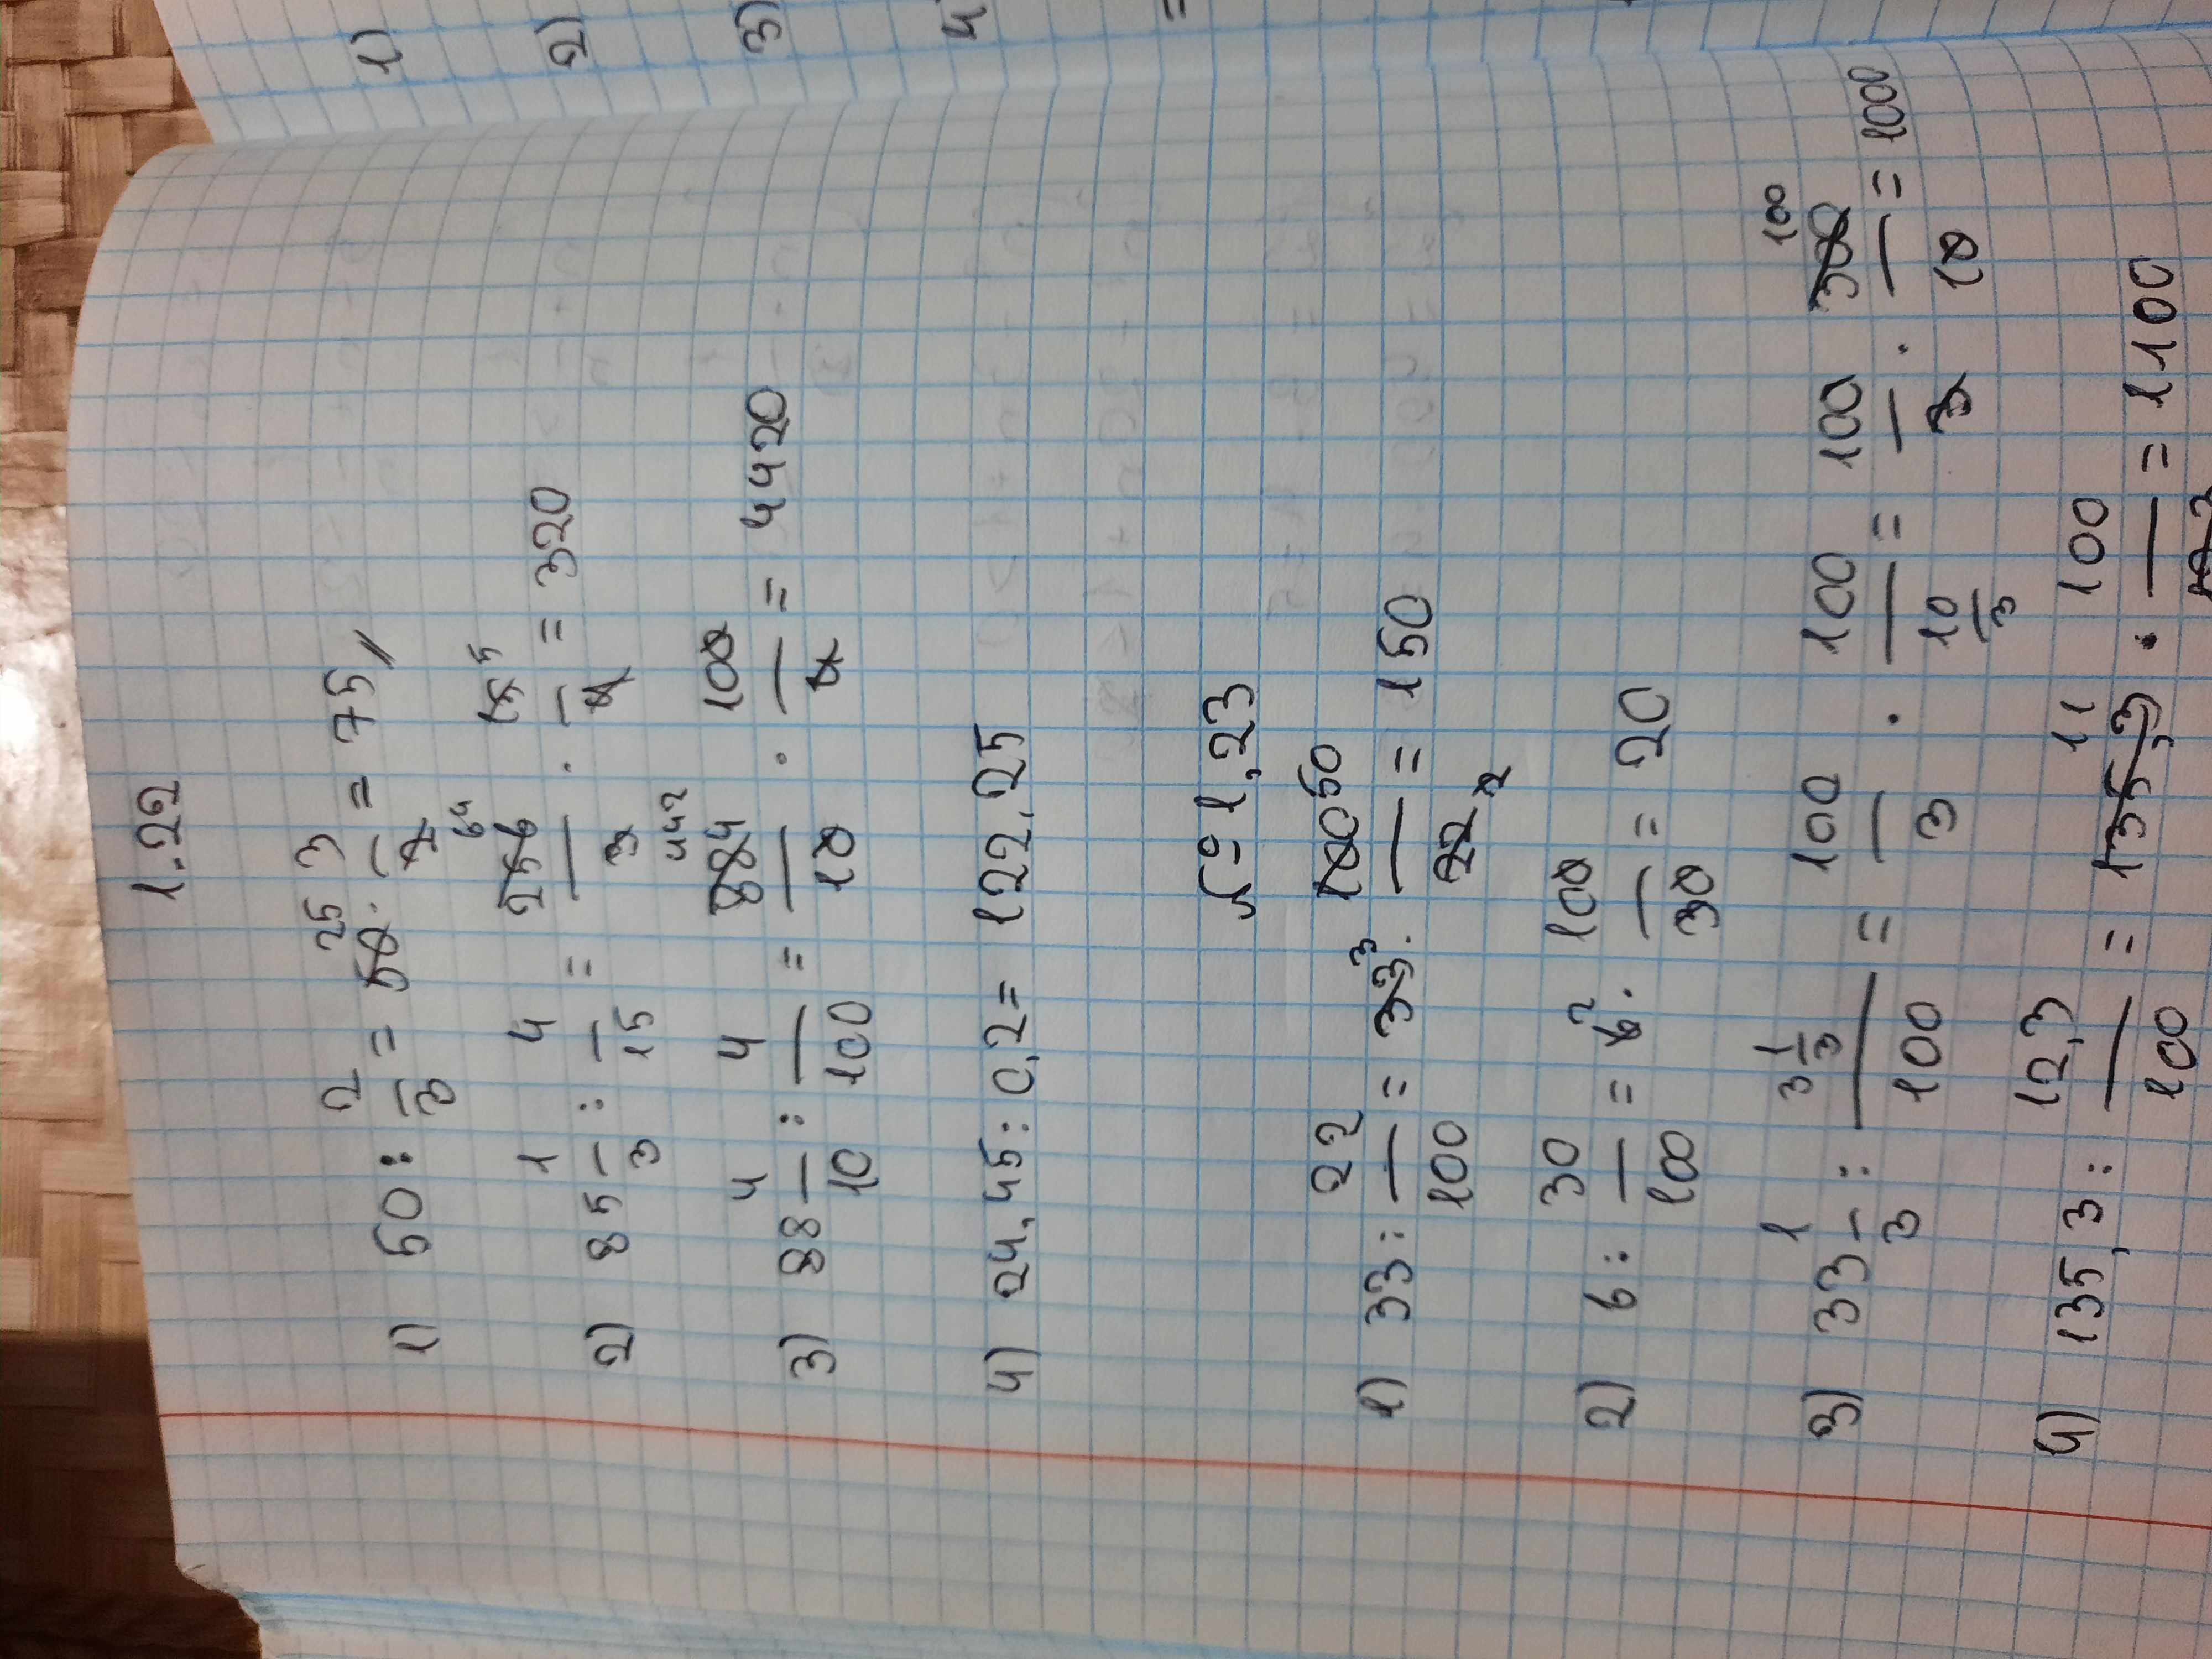 1.22
1) 50 : 2/3 = 50 25 · 3/2 = 75 //
2) 85 1/3 : 4/15 = 256 64/3 · 15 5/4 = 320
3) 88 4/10 : 4/100 = 884 442/10 · 100/4 = 4420
4) 24,45 : 0,2 = 122,25
№ 1,23
1) 33 : 22/100 = 33 3 · 100 50/22 2 = 150
2) 6 : 30/100 = 6 2 · 100/30 = 20
3) 33 1/3 : 3 1/3/100 = 100/3 · 100/10/3 = 100/3 · 300 100/10 = 1000
4) 135,3 : 12,3/100 = 135,3 11 · 100/12,3 = 1100
1)
2)
3)
4
=